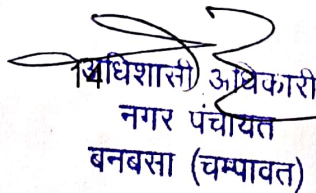 14
अधिशासी अधिकारी
नगर पंचायत
बनबसा (चम्पावत)